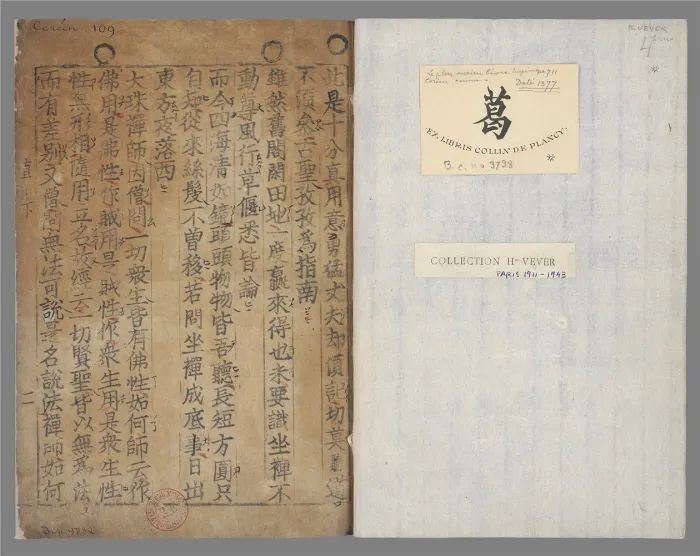 Coréen 109
此是十分真用意勇猛丈夫却須記切莫
不須叅古聖孜孜為指南
雖然舊閣閑田地一度贏來得也未要識坐禪不
動尊風行草偃悉皆論
而今四海清如鏡頭頭物物皆吾聽長短方圓只
自知從來絲髮不曾移若問坐禪成底事日出
東方夜落西
大珠禪師因僧問一切衆生皆有佛性如何師云作
佛用是佛性作賊用是賊性作衆生用是衆生性
性無形相隨用立名故經云一切賢聖皆以無為法
而有差別又僧問無法可說是名說法禪師如何
直下
二
H. VEVER
Le plus ancien livre imprimé
Coréen connu
Daté 1377
葛
EX-LIBRIS COLLIN DE PLANCY
B. c. no 3738
COLLECTION Hⁱ VEVER
PARIS 1911-1943